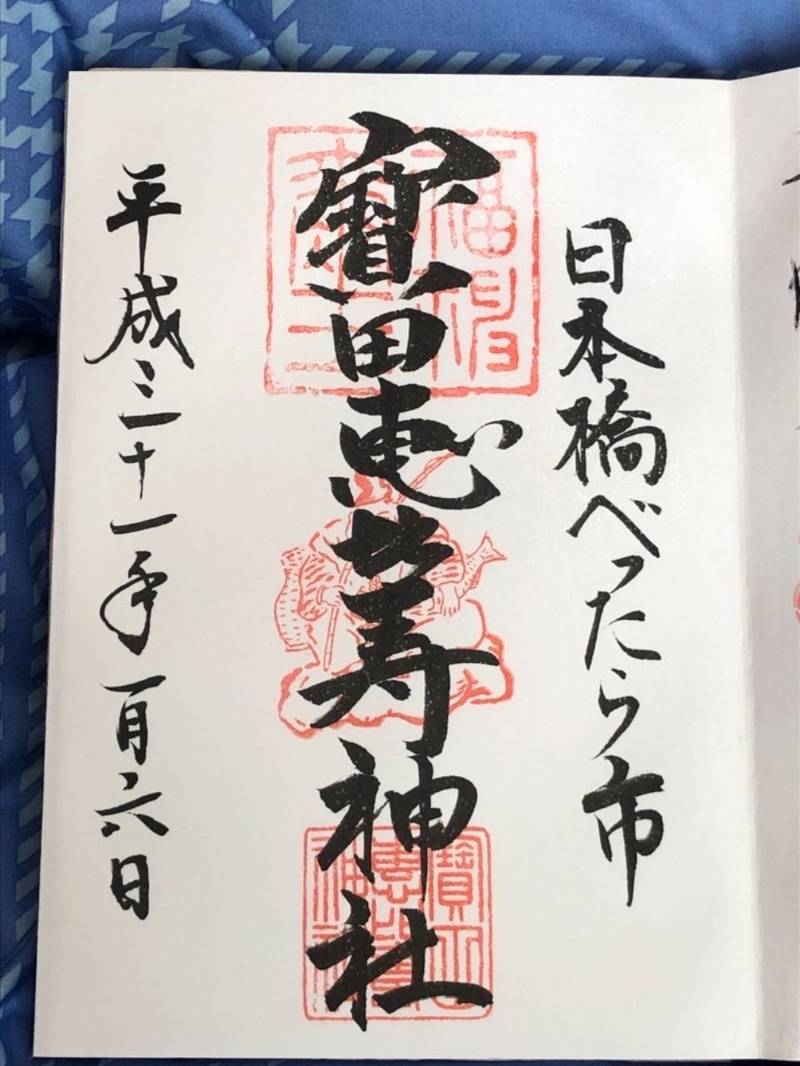 日本橋べったら市
寶田恵比寿神社
平成三十一年一月六日